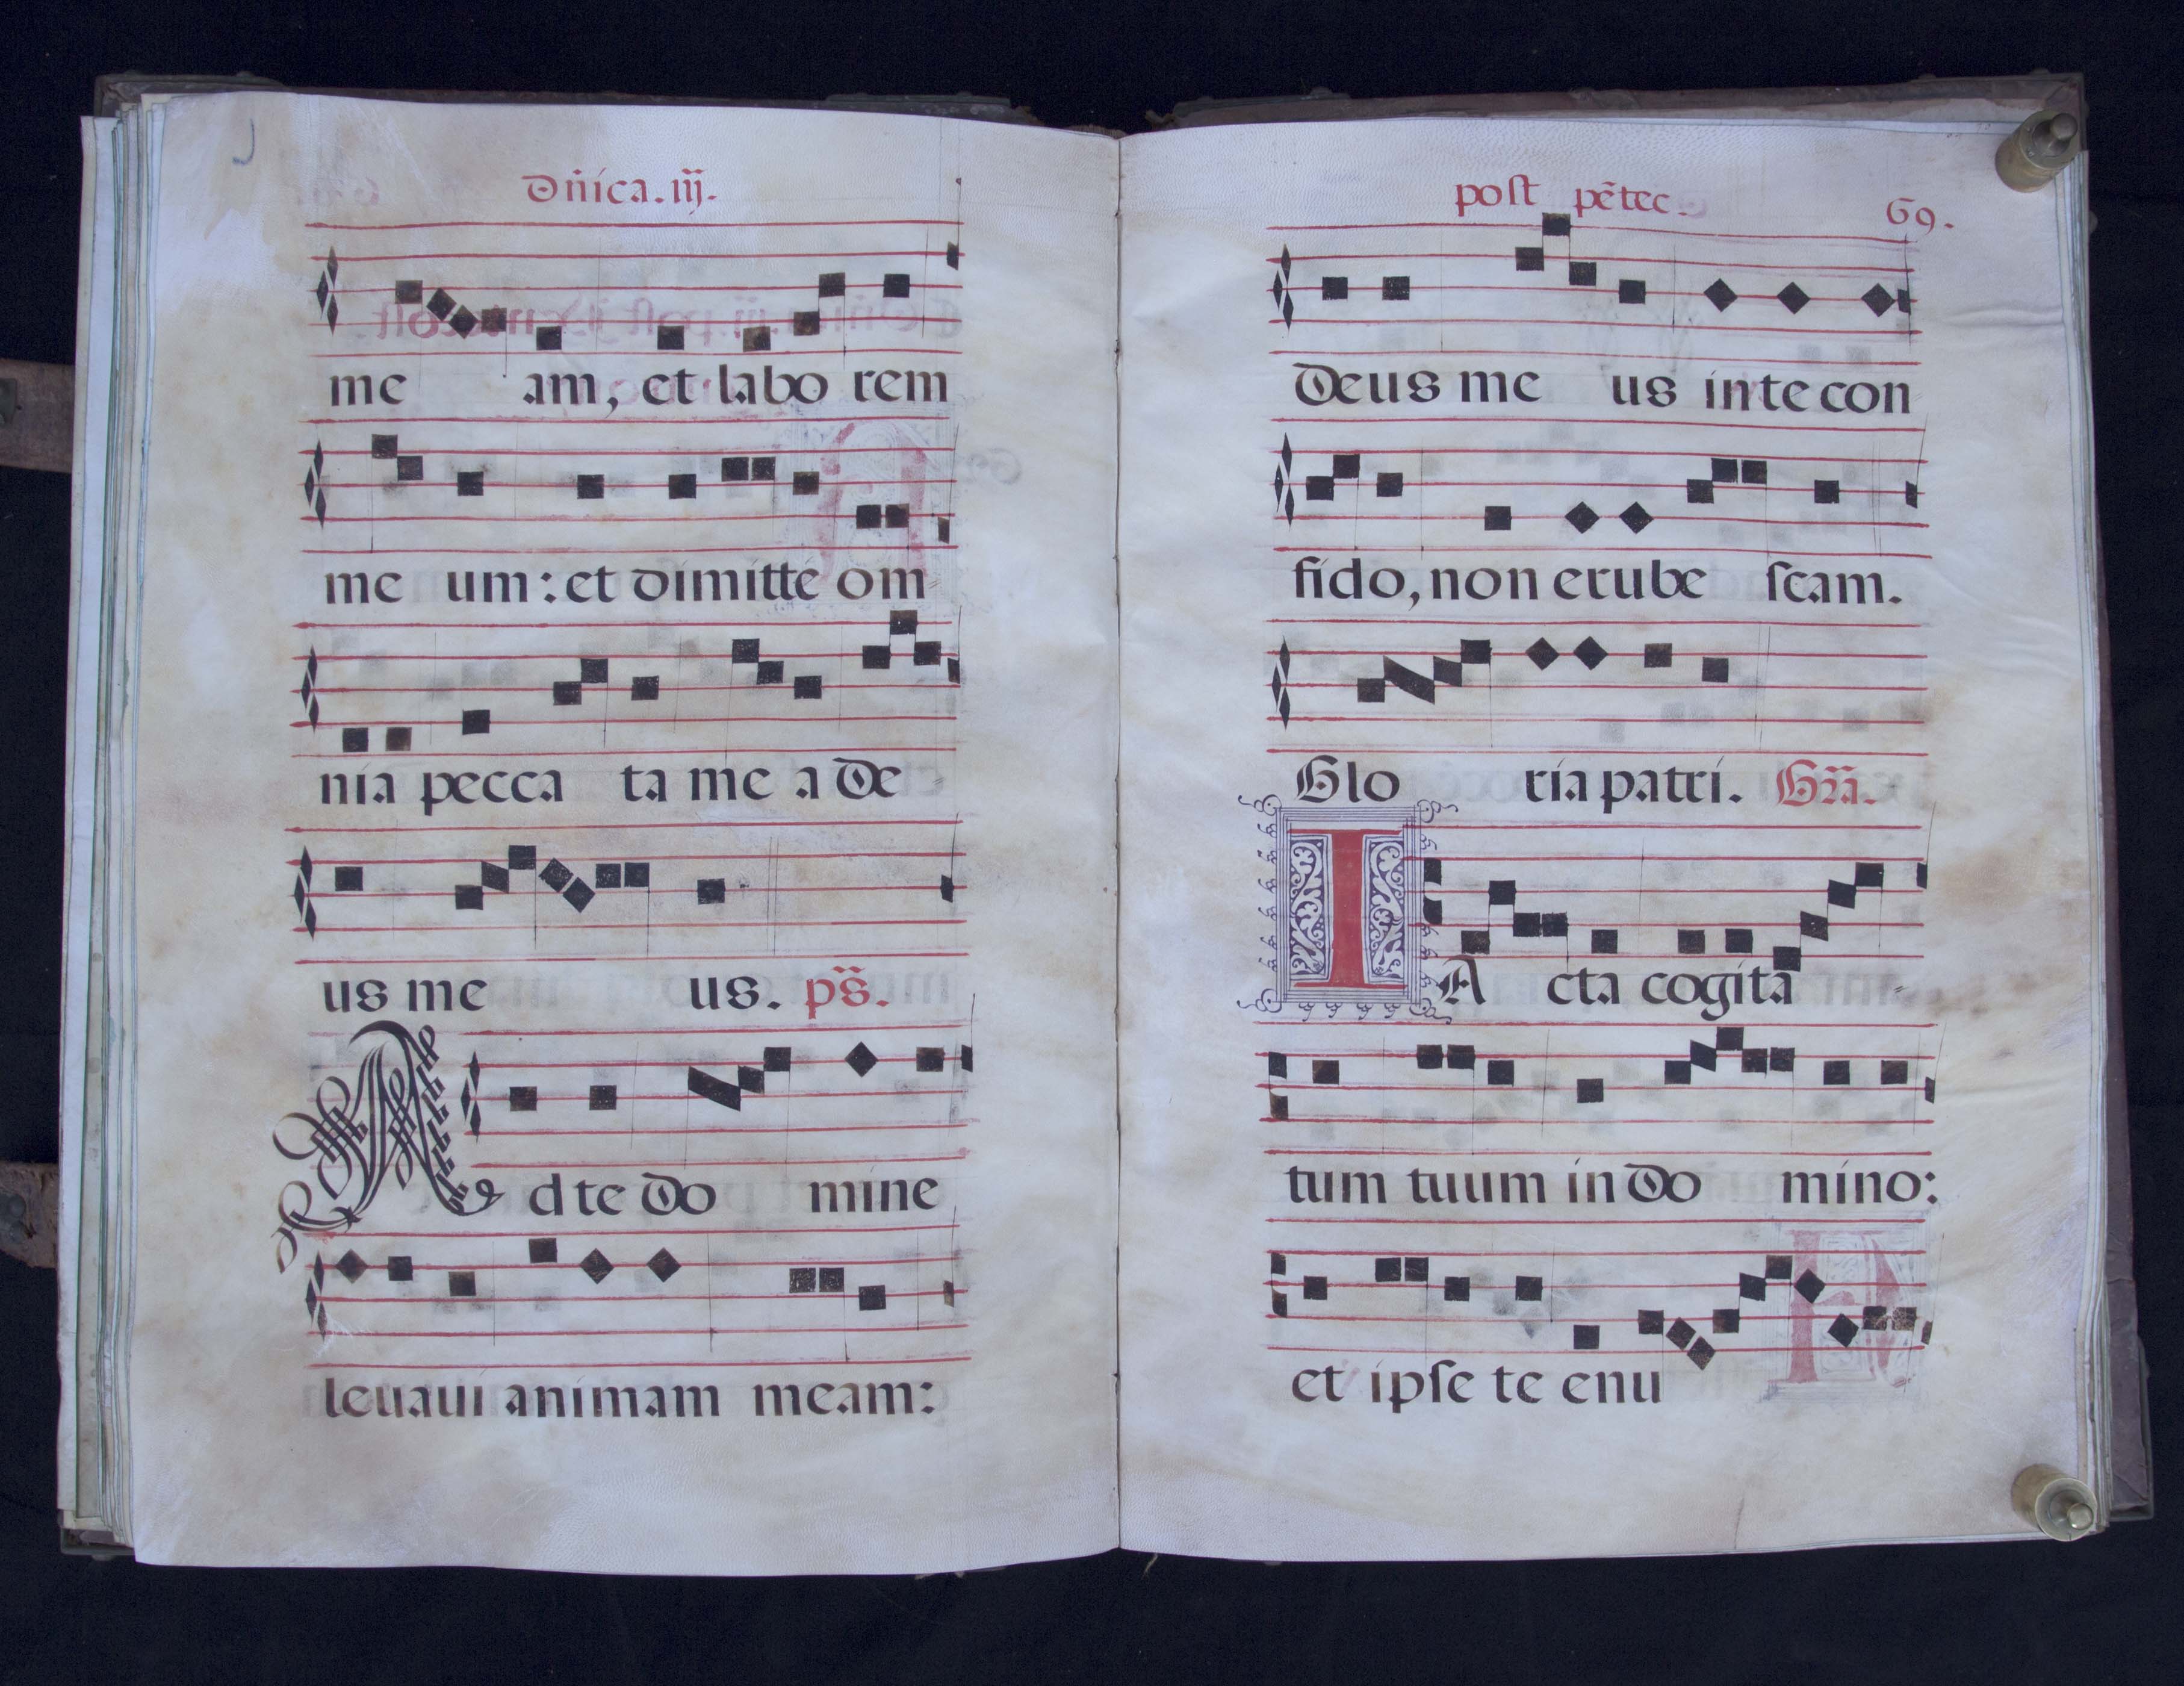 Dñica. iij.
me am, et labo rem
me um: et dimitte om
nia pecca ta me a De
us me us. ps̃.
Ad te Do mine
leuaui animam meam:
post pẽtec.
69.
Deus me us in te con
fido, non erube scam.
Glo ria patri. Gra̅.
IA cta cogita
tum tuum in Do mino:
et ipse te enu